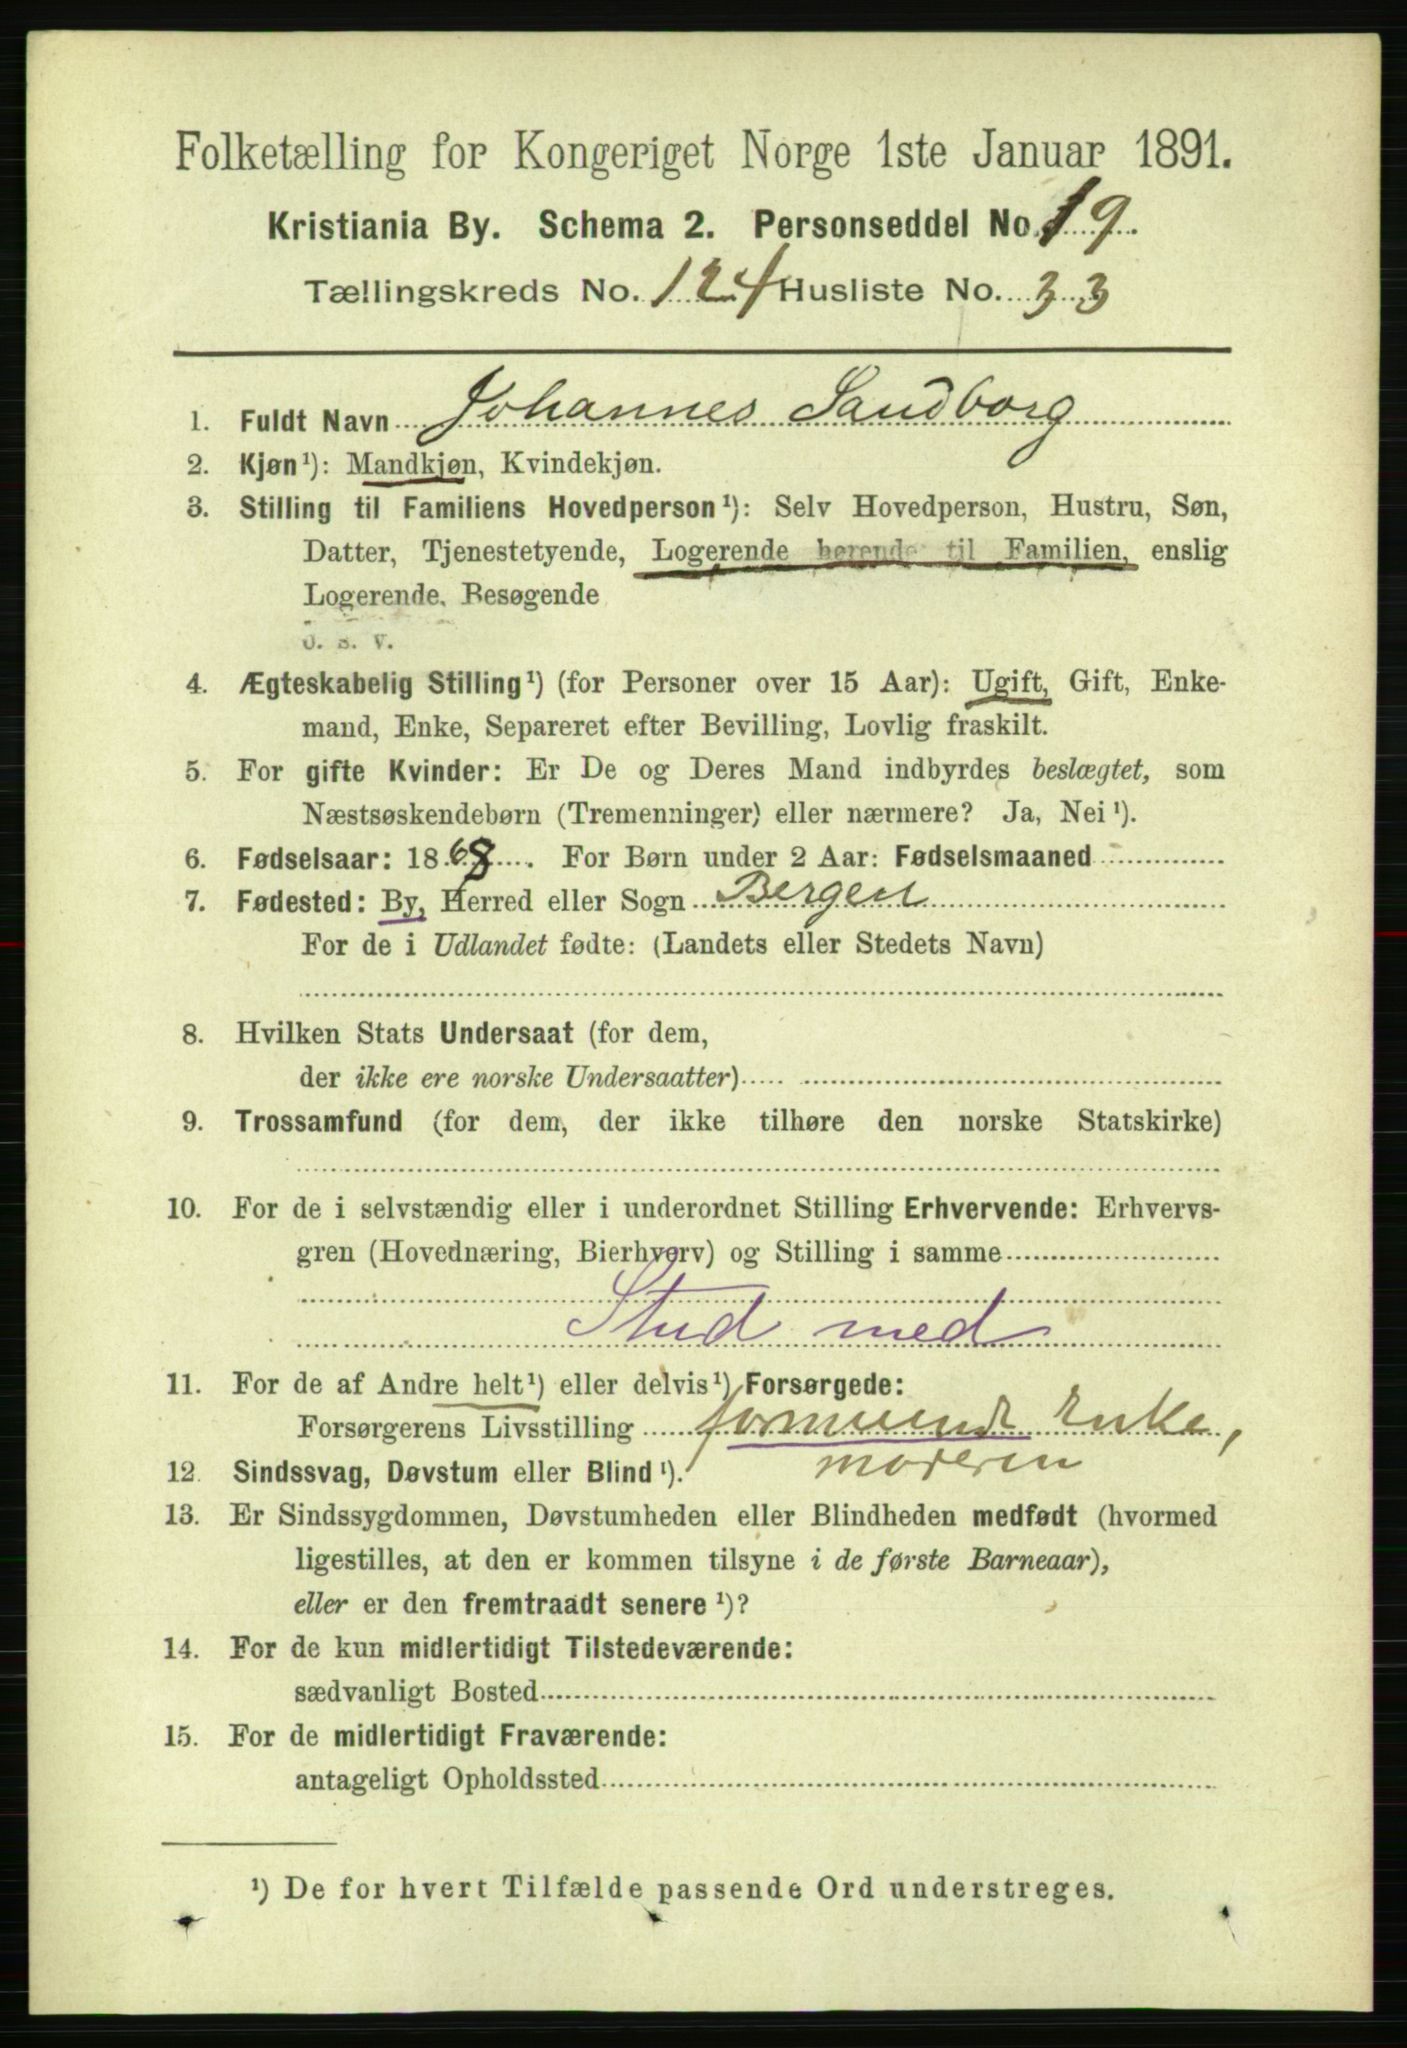 Folketælling for Kongeriget Norge 1ste Januar 1891.
Kristiania By. Schema 2. Personseddel No. 19.
Tællingskreds No. 124 Husliste No. 33
1. Fuldt Navn Johannes Sandborg
2. Kjøn¹): Mandkjøn, Kvindekjøn.
3. Stilling til Familiens Hovedperson¹): Selv Hovedperson, Hustru, Søn,
Datter, Tjenestetyende, Logerende hørende til Familien, enslig
Logerende, Besøgende
o. s. v.
4. Ægteskabelig Stilling¹) (for Personer over 15 Aar): Ugift, Gift, Enke-
mand, Enke, Separeret efter Bevilling, Lovlig fraskilt.
5. For gifte Kvinder: Er De og Deres Mand indbyrdes beslægtet, som
Næstsøskendebørn (Tremenninger) eller nærmere? Ja, Nei¹).
6. Fødselsaar: 1868. For Børn under 2 Aar: Fødselsmaaned
7. Fødested: By, Herred eller Sogn Bergen
For de i Udlandet fødte: (Landets eller Stedets Navn)
8. Hvilken Stats Undersaat (for dem,
der ikke ere norske Undersaatter)
9. Trossamfund (for dem, der ikke tilhøre den norske Statskirke)
10. For de i selvstændig eller i underordnet Stilling Erhvervende: Erhvervs-
gren (Hovednæring, Bierhverv) og Stilling i samme
Stud med
11. For de af Andre helt¹) eller delvis¹) Forsørgede:
Forsørgerens Livsstilling formuende Enke,
moderen
12. Sindssvag, Døvstum eller Blind¹).
13. Er Sindssygdommen, Døvstumheden eller Blindheden medfødt (hvormed
ligestilles, at den er kommen tilsyne i de første Barneaar),
eller er den fremtraadt senere¹)?
14. For de kun midlertidigt Tilstedeværende:
sædvanligt Bosted
15. For de midlertidigt Fraværende:
antageligt Opholdssted
¹) De for hvert Tilfælde passende Ord understreges.